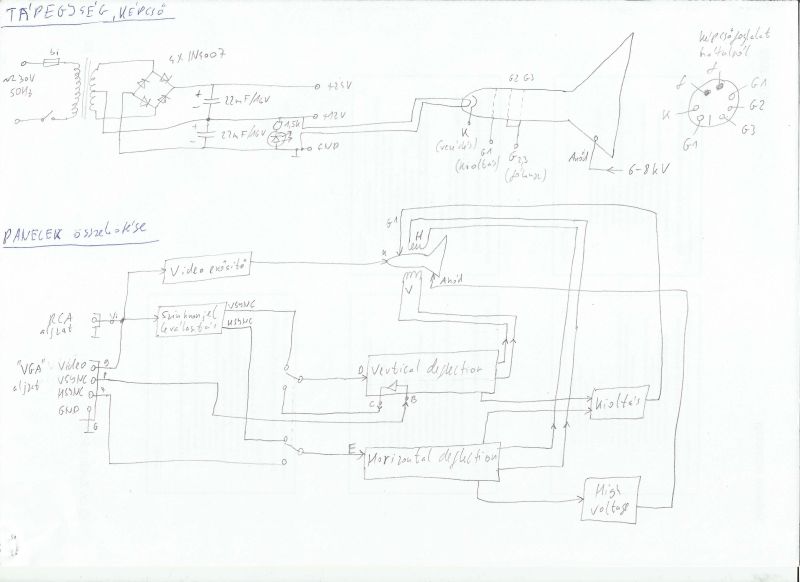 TÁPEGYSÉG, KÉPCSŐ
Bi
~230V
50Hz
4X 1N4007
+
-
22mF/16V
+24V
+
-
22mF/16V
+12V
1,5k
GND
K
(vezérlés)
G1
(kioltás)
G2 G3
G2,3
(fókusz)
Anód
6-8kV
képcsőfoglalat
hátulról
f
f
G1
G2
G3
K
G1
PANELEK összekötése
Video erősítő
K
G1
H
V
Anód
RCA
aljzat
Szinkronjel
leválasztás
VSYNC
HSYNC
"VGA"
aljzat
Video
VSYNC
HSYNC
GND
D
Vertical deflection
C
B
Kioltás
E
Horizontal deflection
High
voltage